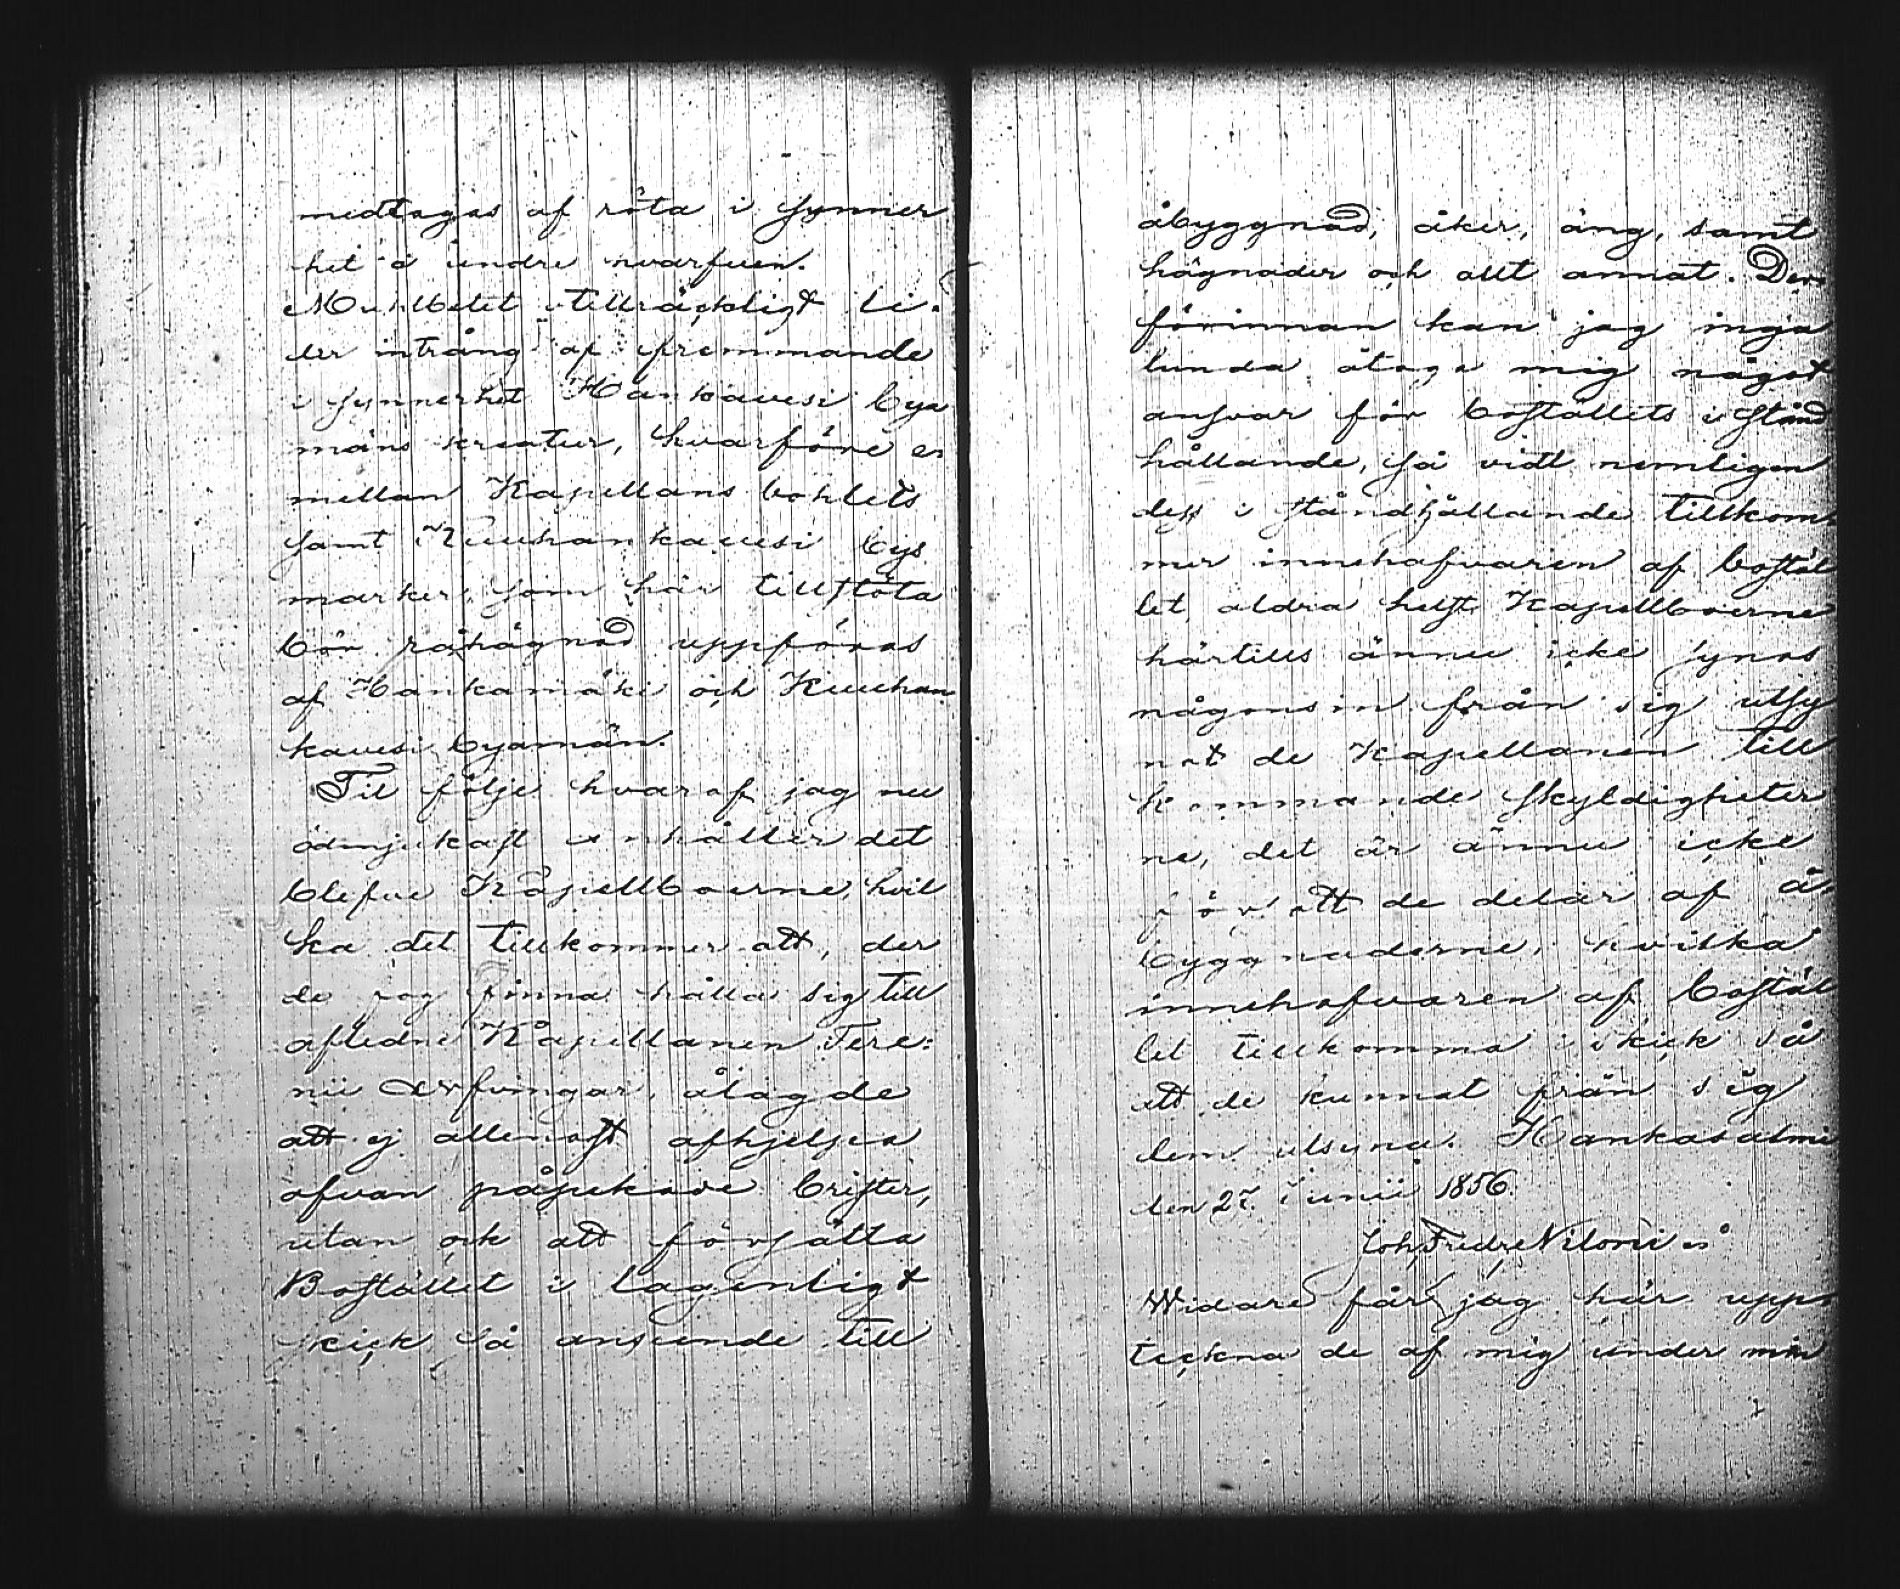 medtagas af röta i synner
het å undre hvarfven.
Muhlbetet tillräckligt li-
der intrång af fremmande
i synnerhet Hankavesi bya
mäns kreatur, hvarföre e-
mellan Kapellans bohlets
samt Kuuhankavesi bys
marker, som här tillstöta
bör råhägnad uppföras
af Hankamäki och Kuuhan
kavesi byamän.
Til följe hvaraf jag nu
ödmjukast anhåller det
blefve Kapellboerne, hvil
ka det tillkommer att, der
de sog finna hålla sig till
afledne Kapellanen Fere:
nii Arfvingar, ålagde
att ej allenast afhjelpa
ofvan påpekade brister,
utan ock att försätta
Bostället i lagenligt
skick så anseende till
åbyggnad, åker, äng, samt
hägnader och allt annat. Der-
förinnan kan jag inga
lunda åtaga mig något
ansvar för boställets i stånd
hållande, så vidt nemligen
dess i ståndhållande tillkom-
mer innehafvaren af bostäl
let, aldra helst Kapellboerne
härtills ännu icke synas
någonsin från sig utsy
nat de Kapellanen till
kommande skyldigheter
ne, det är ännu icke
för att de delar af å-
byggnaderne, hvilka
innehafvaren af bostäl
let tillkomma i skick så
att de kunnat från sig
dem utsyna. Hankasalmi
den 27 Junii 1856.
Joh. Fredr.
Widare får jag här upp-
teckna de af mig under min